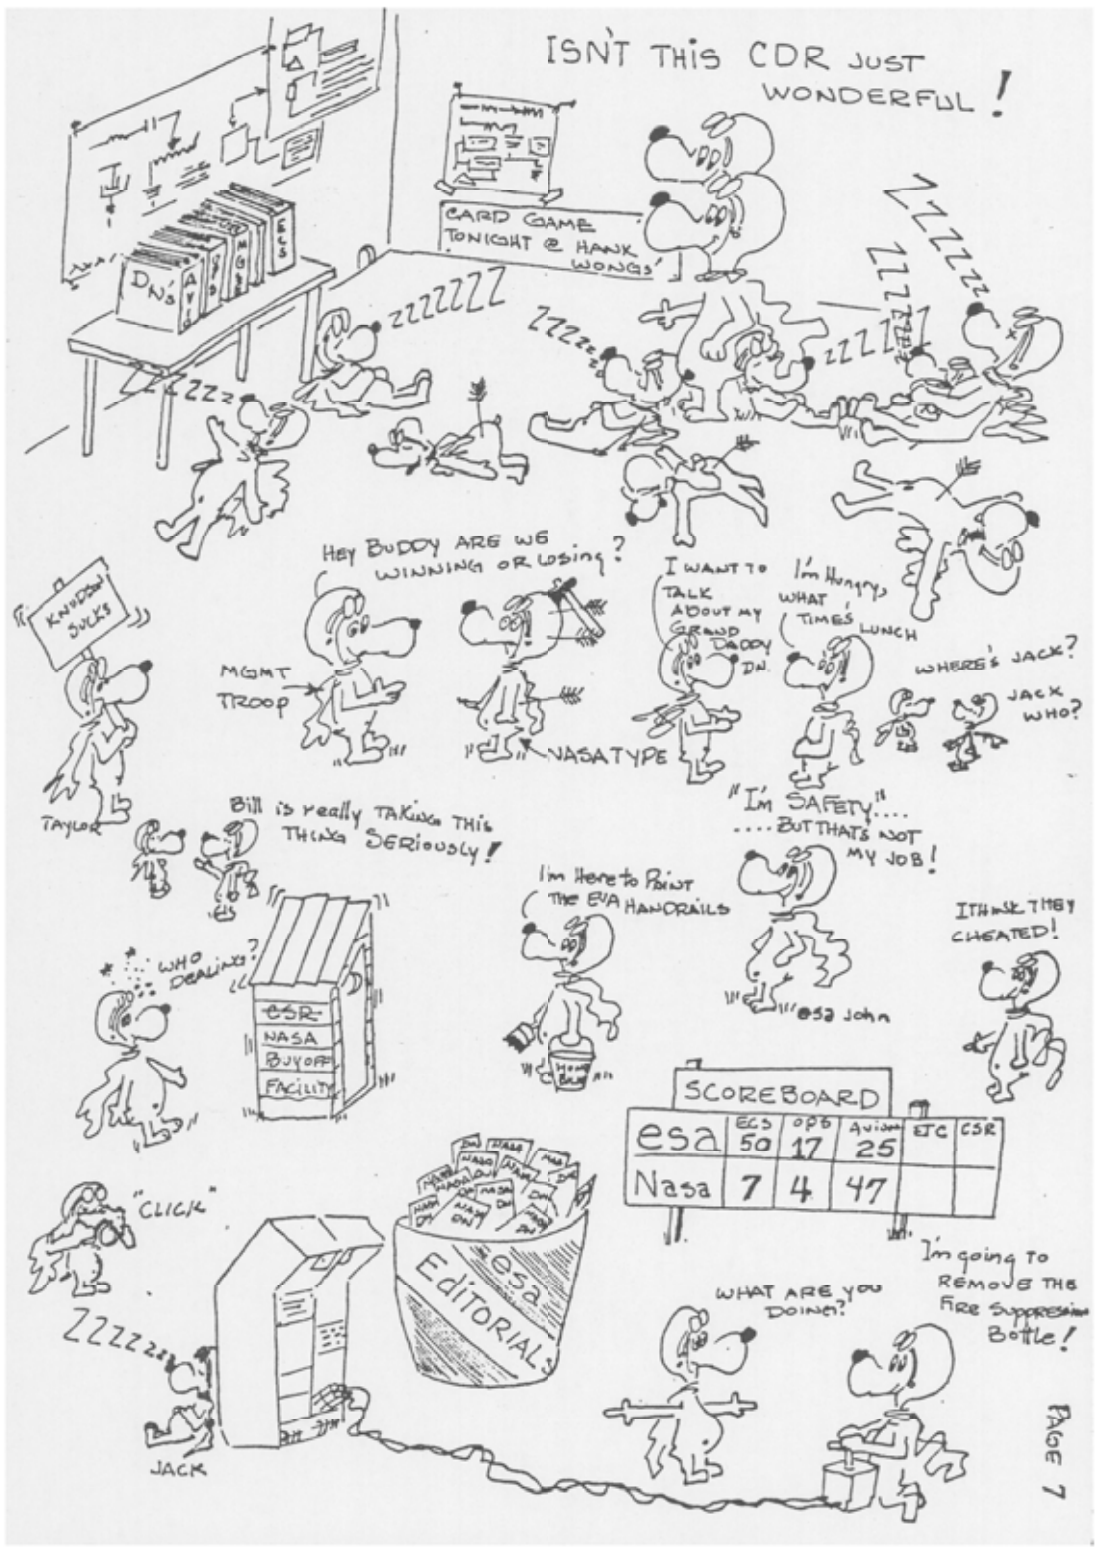 ISN'T THIS CDR JUST
WONDERFUL!
CARD GAME
TONIGHT @ HANK
WONGS'
DN'S
AVIO
OPS
MGSE
ECS
ZZZZZZZ
ZZZZZZ
ZZZZZZ
ZZZZZZ
ZZZZZZ
ZZZZZZ
HEY BUDDY ARE WE
WINNING OR Losing?
KNUDSON
SUCKS
MGMT
TROOP
NASA TYPE
TAYLOR
I WANT TO
TALK
ABOUT MY
GRAND
DADDY
DN.
I'm Hungry,
WHAT
TIME'S
LUNCH
WHERE'S JACK?
JACK
WHO?
Bill is really TAKING THIS
THING SERIOUSLY!
"I'm SAFETY"....
....BUT THAT'S NOT
MY JOB!
esa John
I'm Here to Paint
THE EVA HANDRAILS
I THINK THEY
CHEATED!
WHO
DEALING?
CSR
NASA
BUYOFF
FACILITY
SCOREBOARD
ECS OPS Avion ETC CSR
esa 50 17 25
Nasa 7 4 47
"CLICK"
NASA
DN
esa
EdiTORIALS
ZZZZZzzz
JACK
WHAT ARE YOU
DOING?
I'm going to
REMOVE THE
FIRE SUPPRESSION
Bottle!
PAGE 7